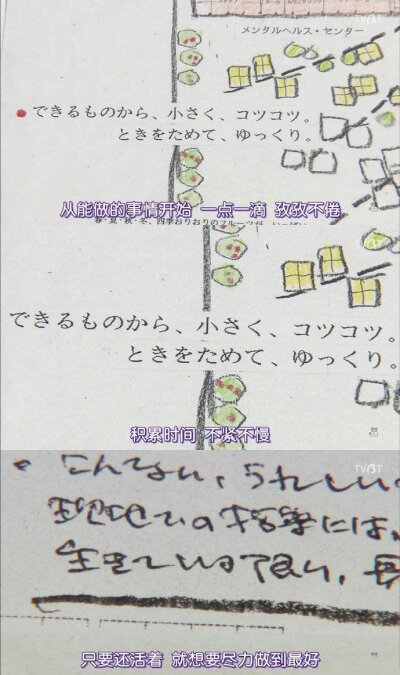 TVBT
メンタルヘルス・センター
できるものから、小さく、コツコツ。
ときをためて、ゆっくり。
从能做的事情开始 一点一滴 孜孜不倦
春・夏・秋・冬、四季おりおりのフルーツが、いっぱい
TVBT
できるものから、小さく、コツコツ。
ときをためて、ゆっくり。
积累时间 不紧不慢
TVBT
こんなない、うれしい
現地での指導には、
生きている限り、
只要还活着 就想要尽力做到最好